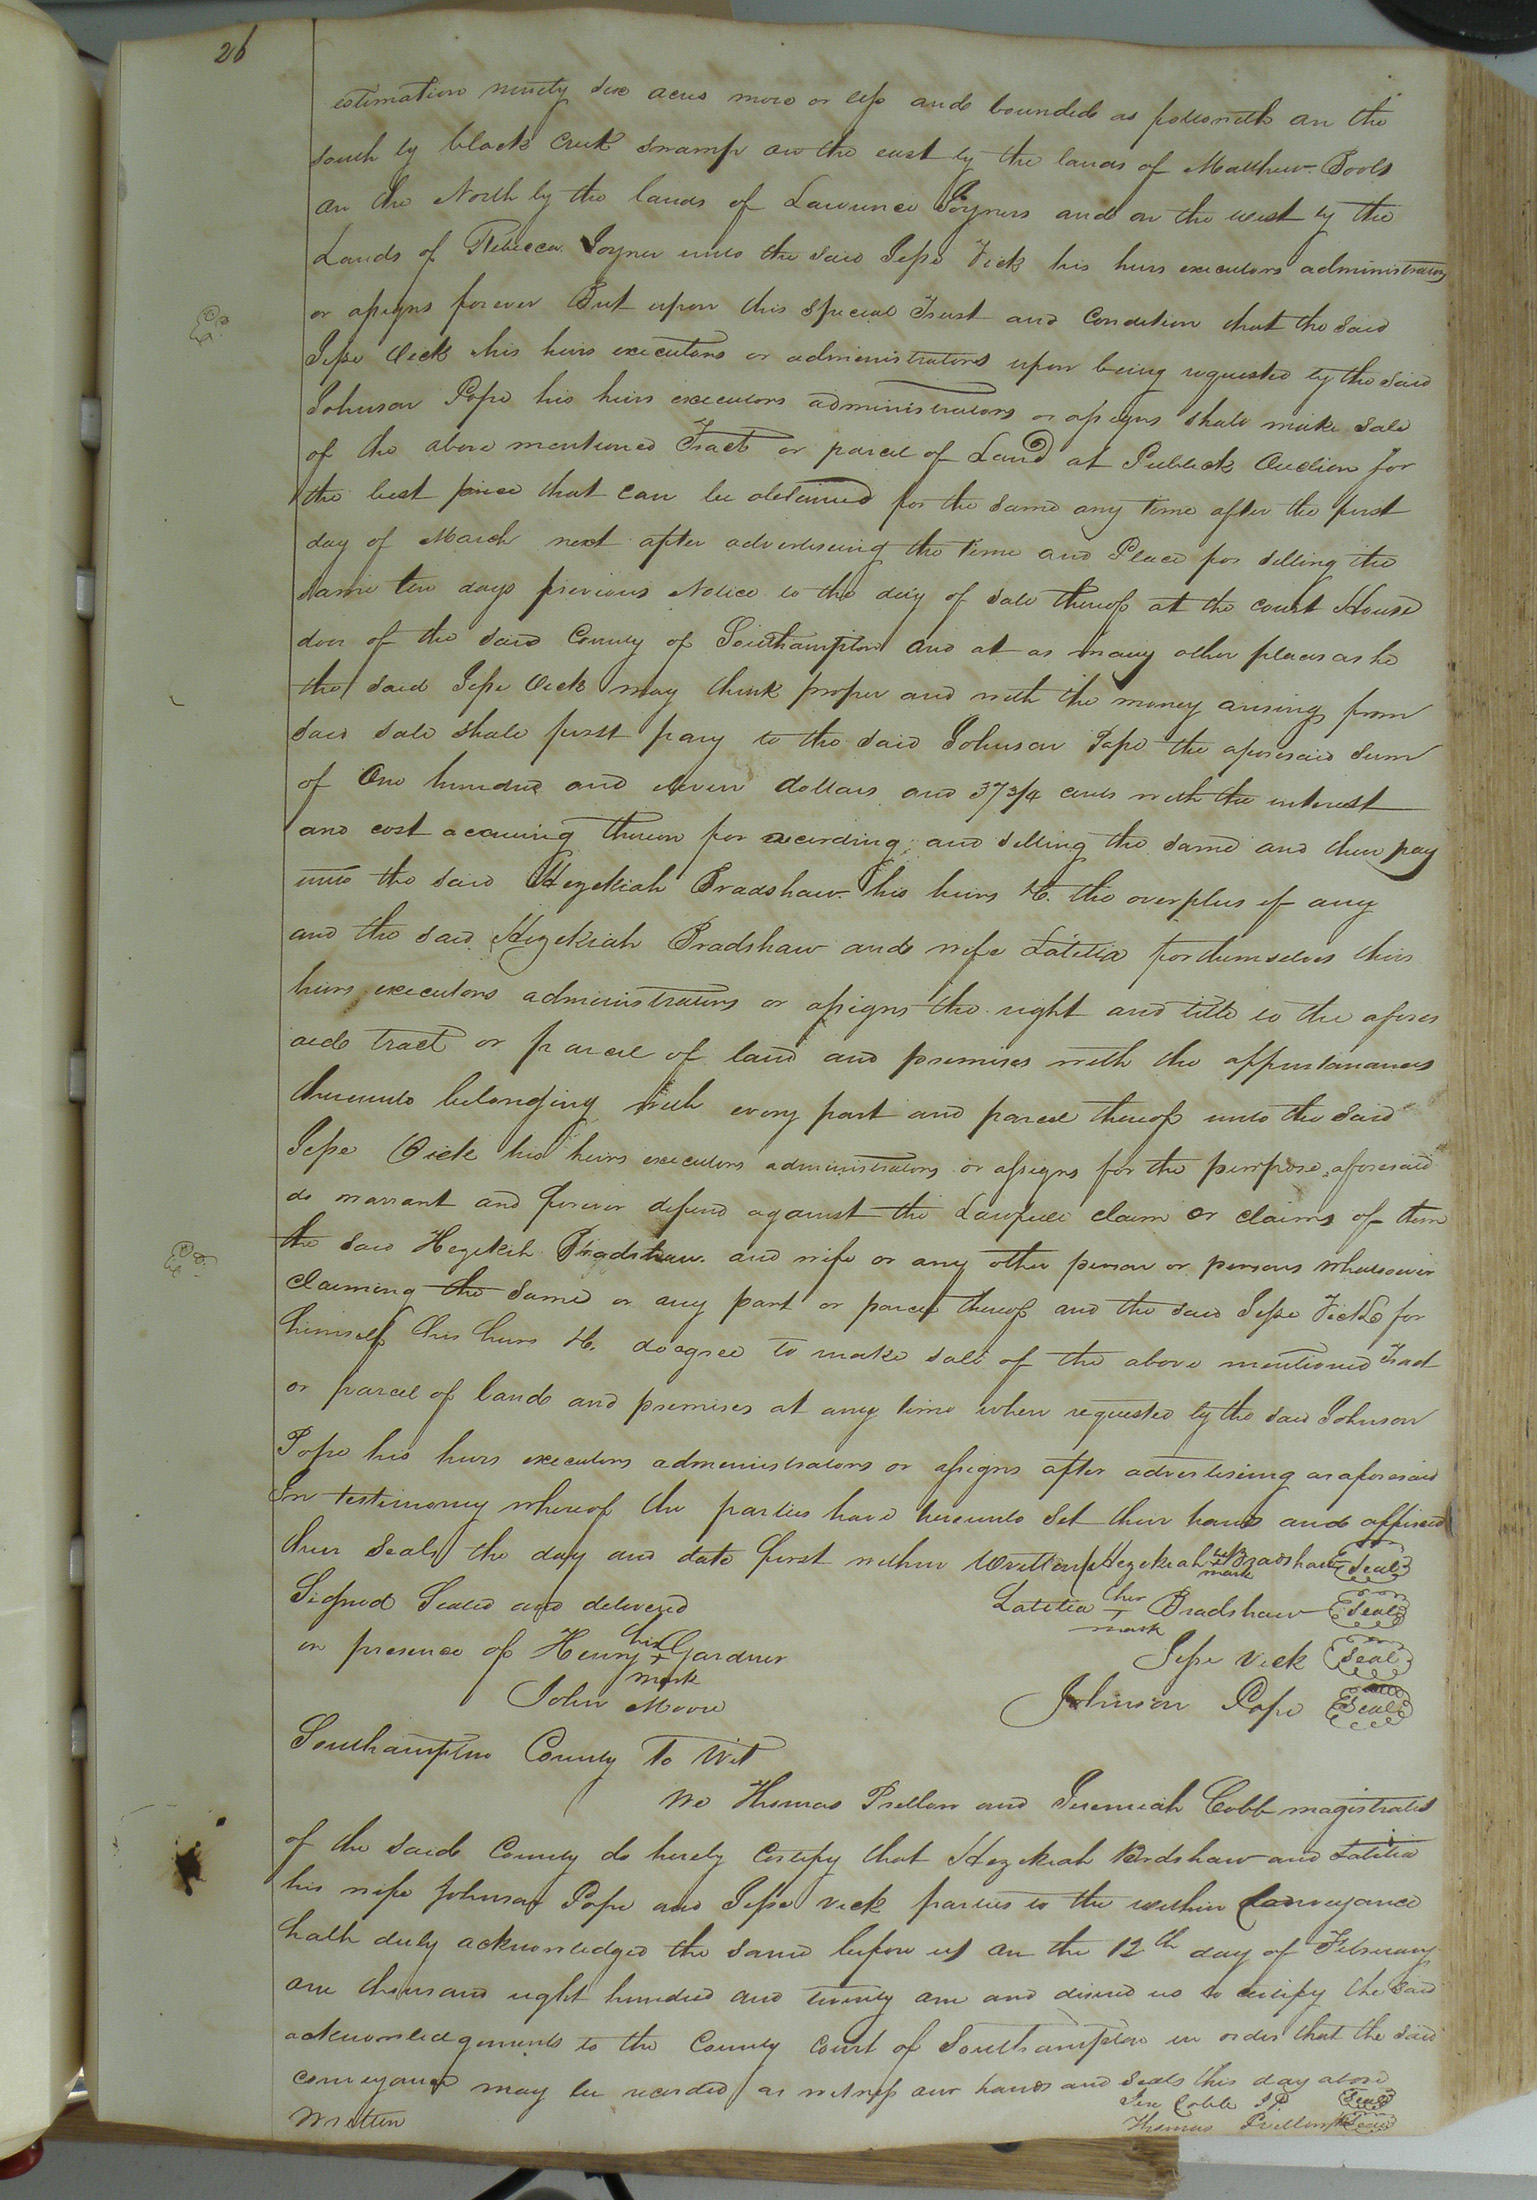 26
estimation ninety six acres more or less and bounded as followeth on the
south by black creek swamp on the east by the lands of Matthew Bools
on the North by the lands of Lawrence Joyners and on the west by the
Lands of Rebecca Joyner unto the said Jesse Vick his heirs executors administrators
or assigns forever But upon this special Trust and Condition that the said
Jesse Vick his heirs executors or administrators upon being requested by the said
Johnson Pope his heirs executors administrators or assigns shall make sale
of the above mentioned Tract or parcel of Land at Publick Auction for
the best price that can be obtained for the same any time after the first
day of March next after advertiseing the time and Place for selling the
same ten days previous Notice to the day of sale thereof at the court House
door of the said County of Southampton and at as many other places as he
the said Jesse Vick may think proper and with the money arising from
said sale shall first pay to the said Johnson Pope the aforesaid sum
of One hundred and eleven dollars and 37 3/4 cents with the interest
and cost accruing thereon for recording and selling the same and then pay
unto the said Hezekiah Bradshaw his heirs &c. the overplus if any
and the said Hezekiah Bradshaw and wife Latitia for themselves their
heirs executors administrators or assigns the right and title to the afores
aid tract or parcel of land and premises with the appurtanances
thereunto belonging with every part and parcel thereof unto the said
Jesse Vick his heirs executors administrators or assigns for the purpose aforesaid
do warrant and forever defend against the Lawfull claim or claims of them
the said Hezekih Bradshaw and wife or any other person or persons whatsoever
claiming the same or any part or parcel thereof and the said Jesse Vick for
himself his heirs &c. do agree to make sale of the above mentioned Tract
or parcel of land and premises at any time when requested by the said Johnson
Pope his heirs executors administrators or assigns after advertising as aforesaid
In testimony whereof the parties have hereunto set their hands and affixed
their seals the day and date first within written Hezekiah his + mark Bradshaw Seal
Signed Sealed and delivered Latitia her + mark Bradshaw Seal
in presence of Henry his + mark Gardner Jesse Vick Seal
John Moore Johnson Pope Seal
Southampton County To Wit
We Thomas Pretlow and Jeremiah Cobb magistrates
of the said County do hereby Certify that Hezekiah Brdshaw and Latitia
his wife Johnson Pope and Jesse Vick parties to the within Conveyance
hath duly acknowledged the same before us on the 12th day of February
one thousand eight hundred and twenty one and desired us to certify the said
acknowledgements to the County court of Southampton in order that the said
conveyance may be recorded as witness our hands and seals this day above
written Jere Cobb J.P. Seal
Thomas Pretlow Seal